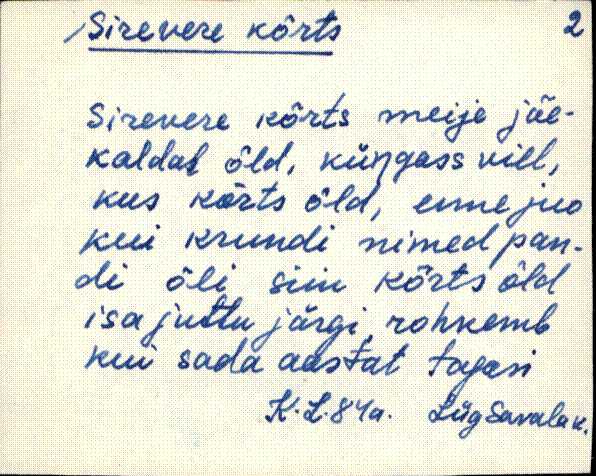 Sirevere kôrts 2
Sirevere kôrts meije jäe-
kaldal ôld, küŋgass viel,
kus kôrts ôld, enne juo
kui krundi nimed pan-
di ôli siin kôrts ôld
isa juttu järgi rohkemb
kui sada aastat tagasi
K.L. 84a. Lüg Savala k.